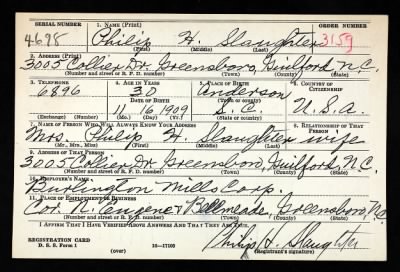 SERIAL NUMBER 1. NAME (Print) ORDER NUMBER
4698 Philip H. Slaughter 3159
(First) (Middle) (Last)
2. ADDRESS (Print)
3005 Collier Dr. Greensboro, Guilford, N.C.
(Number and street or R. F. D. number) (Town) (County) (State)
3. TELEPHONE 4. AGE IN YEARS 5. PLACE OF BIRTH 6. COUNTRY OF CITIZENSHIP
6896 30 Anderson
DATE OF BIRTH (Town or county)
11 16 1909 S.C. U.S.A.
(Exchange) (Number) (Mo.) (Day) (Yr.) (State or country)
7. NAME OF PERSON WHO WILL ALWAYS KNOW YOUR ADDRESS 8. RELATIONSHIP OF THAT PERSON
Mrs. Philip H. Slaughter wife
(Mr., Mrs., Miss) (First) (Middle) (Last)
9. ADDRESS OF THAT PERSON
3005 Collier Dr. Greensboro, Guilford, N.C.
(Number and street or R. F. D. number) (Town) (County) (State)
10. EMPLOYER'S NAME
Burlington Mills Corp.
11. PLACE OF EMPLOYMENT OR BUSINESS
Cor. N. Eugene & Bellmeade, Greensboro, N.C.
(Number and street or R. F. D. number) (Town) (County) (State)
I AFFIRM THAT I HAVE VERIFIED ABOVE ANSWERS AND THAT THEY ARE TRUE.
REGISTRATION CARD
D. S. S. Form 1 (over) 16—17105 Philip H. Slaughter
(Registrant's signature)